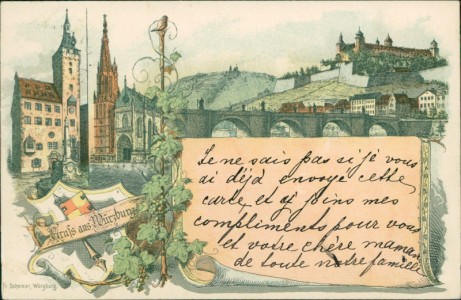 Je ne sais pas si je vous
ai déjà envoyé cette
carte et j'y joins mes
compliments pour vous
et votre chère maman
de toute notre famille
Gruss aus Würzburg
Würzburg.